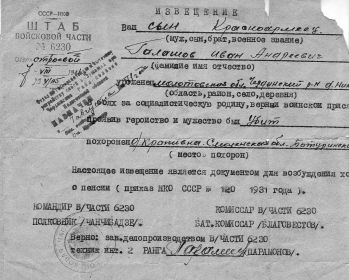 СССР-НКО
ИЗВЕЩЕНИЕ
ШТАБ
ВОЙСКОВОЙ ЧАСТИ
№ 6230
Ваш сын Красноармеец
(муж, сын, брат, военное звание)
Галашов Иван Андреевич
(фамилие имя отчество)
уроженец Молотовская обл. Чердынский р-н д.
(область, район, село, деревня)
в боях за социалистическую родину, верный воинской прися
проявив героизм и мужество был Убит
похоронен д. Крапивна Смоленская обл. Батуринск
(место похорон)
Настоящее извещение является документом для возбуждения хо
о пенсии (приказ НКО СССР № 120 1931 года).
КОМАНДИР В/ЧАСТИ 6230 КОМИССАР В/ЧАСТИ 6230
ПОЛКОВНИК /ЧАНЧИБАДЗЕ/. БАТ.КОМИССАР /БЛАГОВЕСТОВ/.
Верно: зав.делопроизводством В/ЧАСТИ 6230
техник инт. 2 РАНГА /ПАРАМОНОВ/.